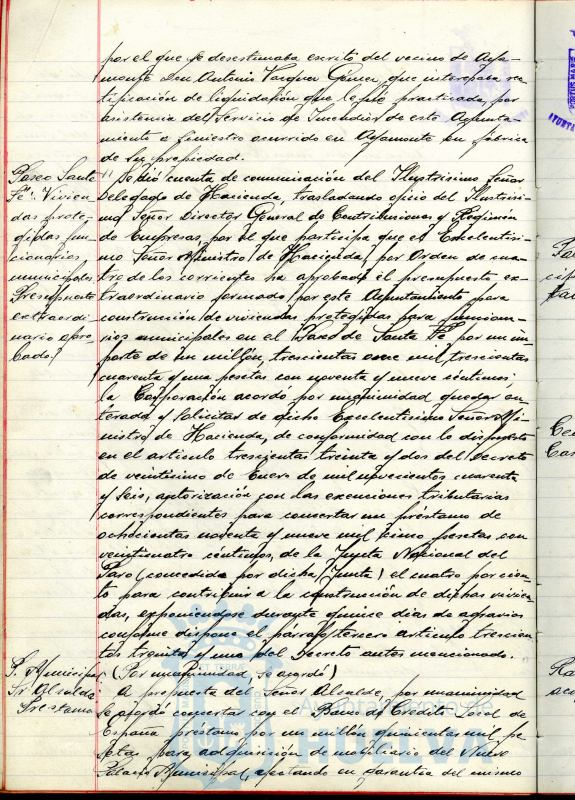 por el que se desestimaba escrito del vecino de Aya-
monte Don Antonio Vazquez Gómez, que interesaba rec-
tificación de liquidación que le fué practicada, por
asistencia del Servicio de Incendios de este Ayunta-
miento a siniestro ocurrido en Ayamonte en fábrica
de su propiedad.
Paseo Santa
Fé. Vivien-
das prote-
gidas fun-
cionarios
municipales
Presupuesto
extraordi-
nario apro-
bado.
Se dió cuenta de comunicación del Ilustrisimo Señor
Delegado de Hacienda, trasladando oficio del Ilustrisi-
mo Señor Director General de Contribuciones y Regimen
de Empresas, por el que participa que el Excelentisi-
mo Señor Ministro de Hacienda, por Orden de cua-
tro de los corrientes ha aprobado el presupuesto ex-
traordinario formado por este Ayuntamiento para
construcción de viviendas protegidas para funciona-
rios municipales en el Paseo de Santa Fé, por un im-
porte de un millón, trescientas once mil, trescientas
cuarenta y una pesetas con noventa y nueve céntimos;
la Corporación acordó por unanimidad quedar en-
terada y solicitar de dicho Excelentisimo Señor Mi-
nistro de Hacienda, de conformidad con lo dispuesto
en el articulo trescientos treinta y dos del Decreto
de veinticinco de Enero de mil novecientos cuarenta
y seis, autorización con las exenciones tributarias
correspondientes para concertar un préstamo de
ochocientas noventa y nueve mil cinco pesetas con
veinticuatro céntimos, de la Junta Nacional del
Paro (concedida por dicha Junta) el cuatro por cien-
to para contribuir a la construcción de dichas vivien-
das, exponiendose durante quince dias de agravios
conforme dispone el párrafo tercero articulo trescien-
tos treinta y uno del Decreto antes mencionado.
(Por unanimidad, se acordó)
P. Municipal
Sr. Alcalde
Prestamo
A propuesta del Señor Alcalde, por unanimidad
se acordó concertar con el Banco de Credito Local de
España préstamo por un millón quinientas mil pe-
setas para adquisición de mobiliario del Nuevo
Palacio Municipal, afectando en garantia del mismo
Ayuntamiento de
HUELVA